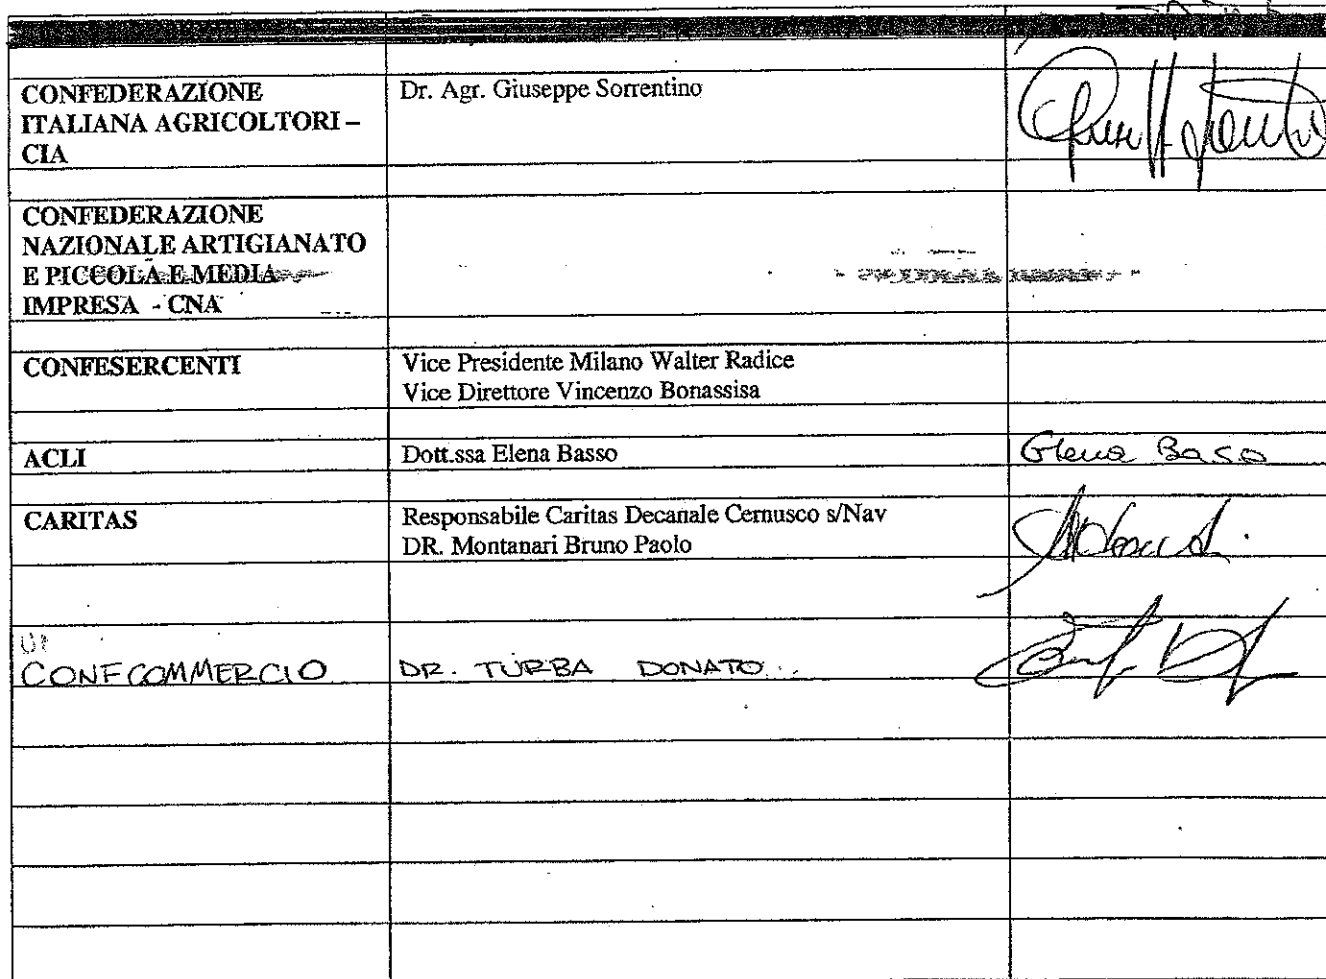 CONFEDERAZIONE
ITALIANA AGRICOLTORI –
CIA
Dr. Agr. Giuseppe Sorrentino
CONFEDERAZIONE
NAZIONALE ARTIGIANATO
E PICCOLA E MEDIA
IMPRESA - CNA
CONFESERCENTI
Vice Presidente Milano Walter Radice
Vice Direttore Vincenzo Bonassisa
ACLI
Dott.ssa Elena Basso
Elena Basso
CARITAS
Responsabile Caritas Decanale Cernusco s/Nav
DR. Montanari Bruno Paolo
CONFCOMMERCIO
DR. TURBA DONATO